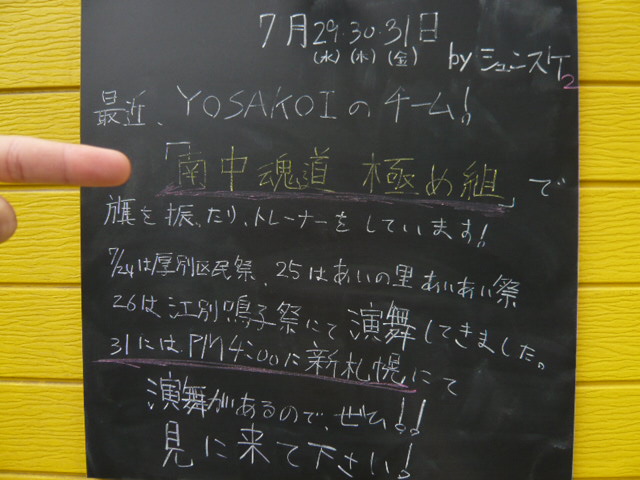 7月29.30.31日
(水)(木)(金)
byシュンスケ2
最近、YOSAKOIのチーム!
「南中魂道 極め組」で
旗を振ったり、トレーナーをしています!
7/24は厚別区民祭、25はあいの里あいあい祭
26は江別鳴子祭にて演舞してきました。
31にはPM4:00に新札幌にて
演舞があるので、ぜひ!!
見に来て下さい!